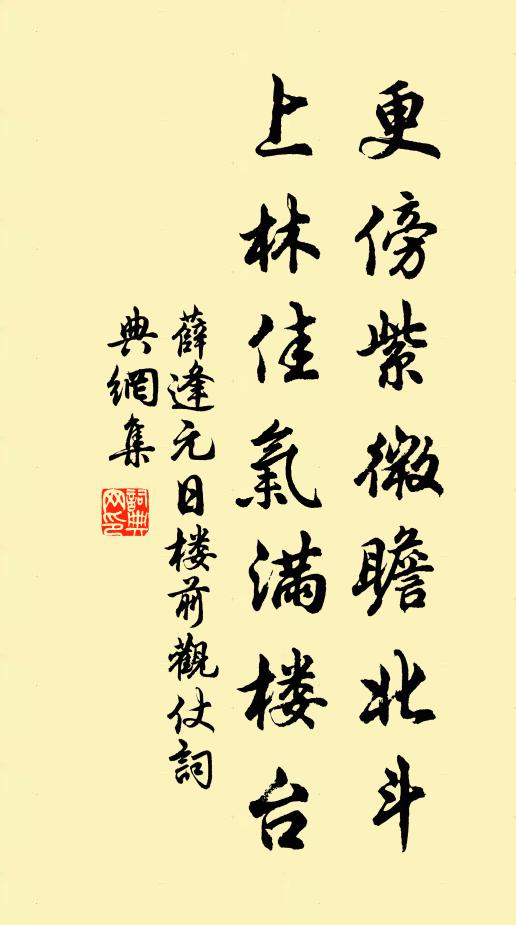 更傍紫微瞻北斗
上林佳氣满楼台
薛逢元日楼前觀仗詞
典網集
詞典网印